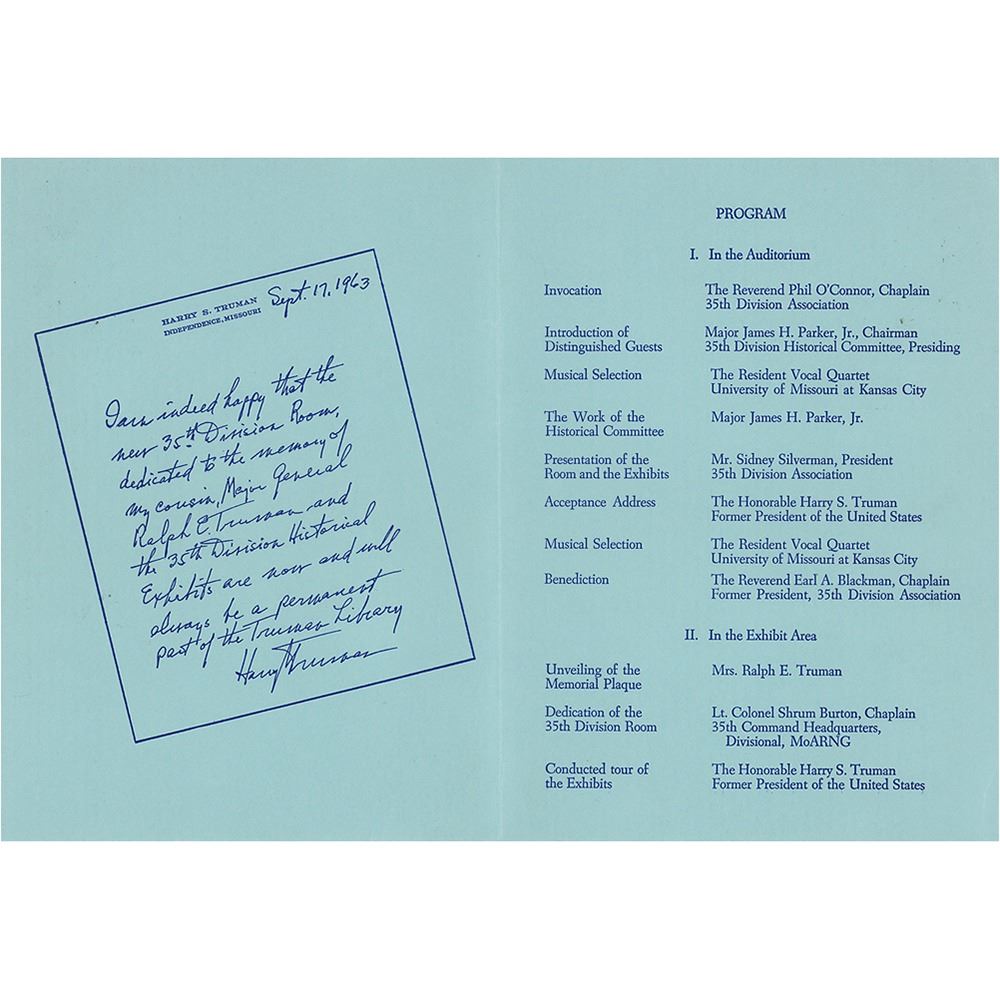 HARRY S. TRUMAN
INDEPENDENCE, MISSOURI
Sept. 17, 1963
I am indeed happy that the
new 35th Division Room,
dedicated to the memory of
my cousin, Major General
Ralph E. Truman and
the 35th Division Historical
Exhibits are now and will
always be a permanent
part of the Truman Library
Harry Truman
PROGRAM
I. In the Auditorium
Invocation The Reverend Phil O'Connor, Chaplain
35th Division Association
Introduction of Major James H. Parker, Jr., Chairman
Distinguished Guests 35th Division Historical Committee, Presiding
Musical Selection The Resident Vocal Quartet
University of Missouri at Kansas City
The Work of the Major James H. Parker, Jr.
Historical Committee
Presentation of the Mr. Sidney Silverman, President
Room and the Exhibits 35th Division Association
Acceptance Address The Honorable Harry S. Truman
Former President of the United States
Musical Selection The Resident Vocal Quartet
University of Missouri at Kansas City
Benediction The Reverend Earl A. Blackman, Chaplain
Former President, 35th Division Association
II. In the Exhibit Area
Unveiling of the Mrs. Ralph E. Truman
Memorial Plaque
Dedication of the Lt. Colonel Shrum Burton, Chaplain
35th Division Room 35th Command Headquarters,
Divisional, MoARNG
Conducted tour of The Honorable Harry S. Truman
the Exhibits Former President of the United States